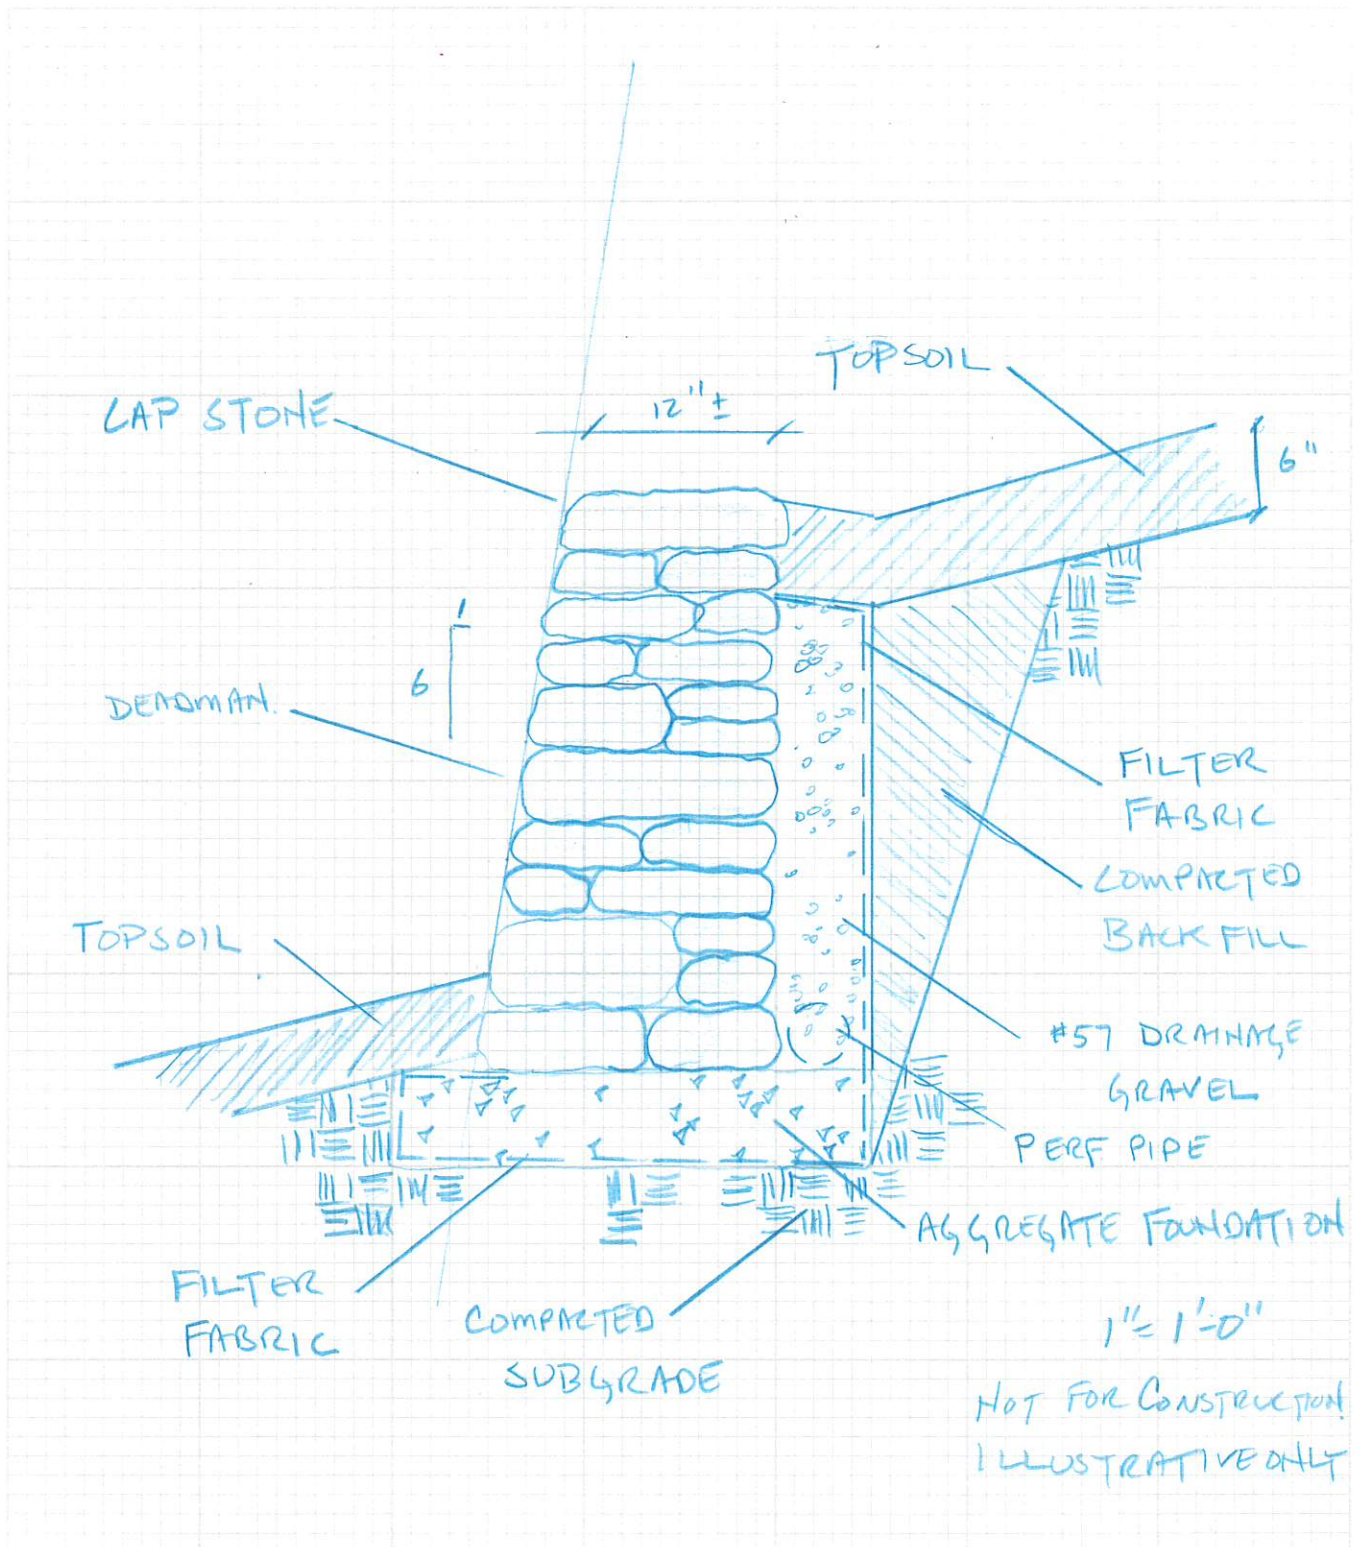 TOPSOIL
CAP STONE
12"±
6"
1
6
DEADMAN.
FILTER
FABRIC
COMPACTED
BACK FILL
TOPSOIL
#57 DRAINAGE
GRAVEL
PERF PIPE
AGGREGATE FOUNDATION
FILTER
FABRIC
COMPACTED
SUBGRADE
1"= 1'-0"
NOT FOR CONSTRUCTION
ILLUSTRATIVE ONLY